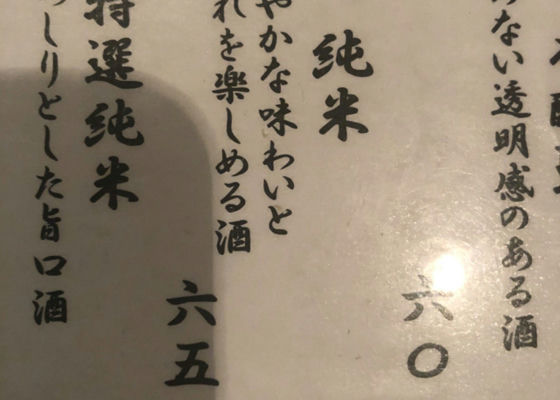 ない透明感のある酒
六〇
純米
やかな味わいと
れを楽しめる酒
六五
特選純米
しりとした旨口酒